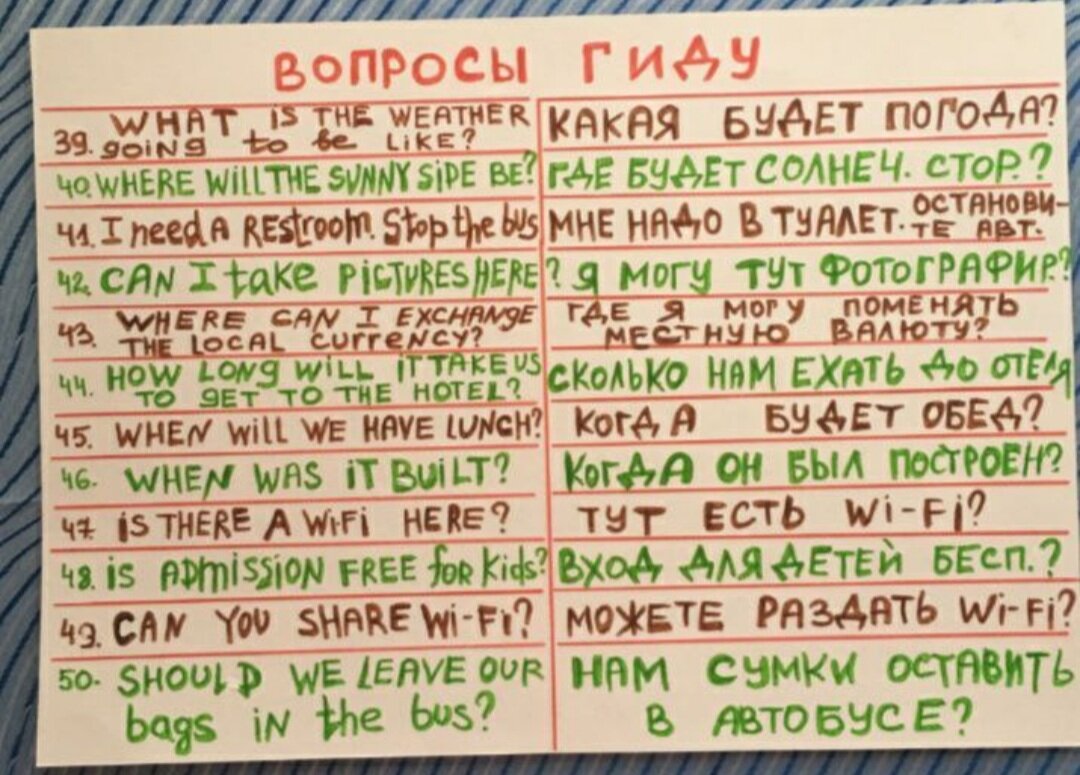 ВОПРОСЫ ГИДУ
39. WHAT IS THE WEATHER
going to be LIKE?
КАКАЯ БУДЕТ ПОГОДА?
40. WHERE WILL THE SUNNY SIDE BE?
ГДЕ БУДЕТ СОЛНЕЧ. СТОР.?
41. I need A REStrooM. Stop the bus
МНЕ НАДО В ТУАЛЕТ. ОСТАНОВИ-
ТЕ АВТ.
42. CAN I take PICTURES HERE?
Я МОГУ ТУТ ФОТОГРАФИР.?
43. WHERE CAN I EXCHANGE
THE LOCAL CURRENCY?
ГДЕ Я МОГУ ПОМЕНЯТЬ
МЕСТНУЮ ВАЛЮТУ?
44. HOW LONG WILL IT TAKE US
TO GET TO THE HOTEL?
СКОЛЬКО НАМ ЕХАТЬ ДО ОТЕЛЯ
45. WHEN WILL WE HAVE LUNCH?
КОГДА БУДЕТ ОБЕД?
46. WHEN WAS IT BUILT?
КОГДА ОН БЫЛ ПОСТРОЕН?
47. IS THERE A WiFi HERE?
ТУТ ЕСТЬ Wi-Fi?
48. is ADMISSION FREE for Kids?
ВХОД ДЛЯ ДЕТЕЙ БЕСП.?
49. CAN YOU SHARE Wi-Fi?
МОЖЕТЕ РАЗДАТЬ Wi-Fi?
50. SHOULD WE LEAVE OUR
bags iN the bus?
НАМ СУМКИ ОСТАВИТЬ
В АВТОБУСЕ?